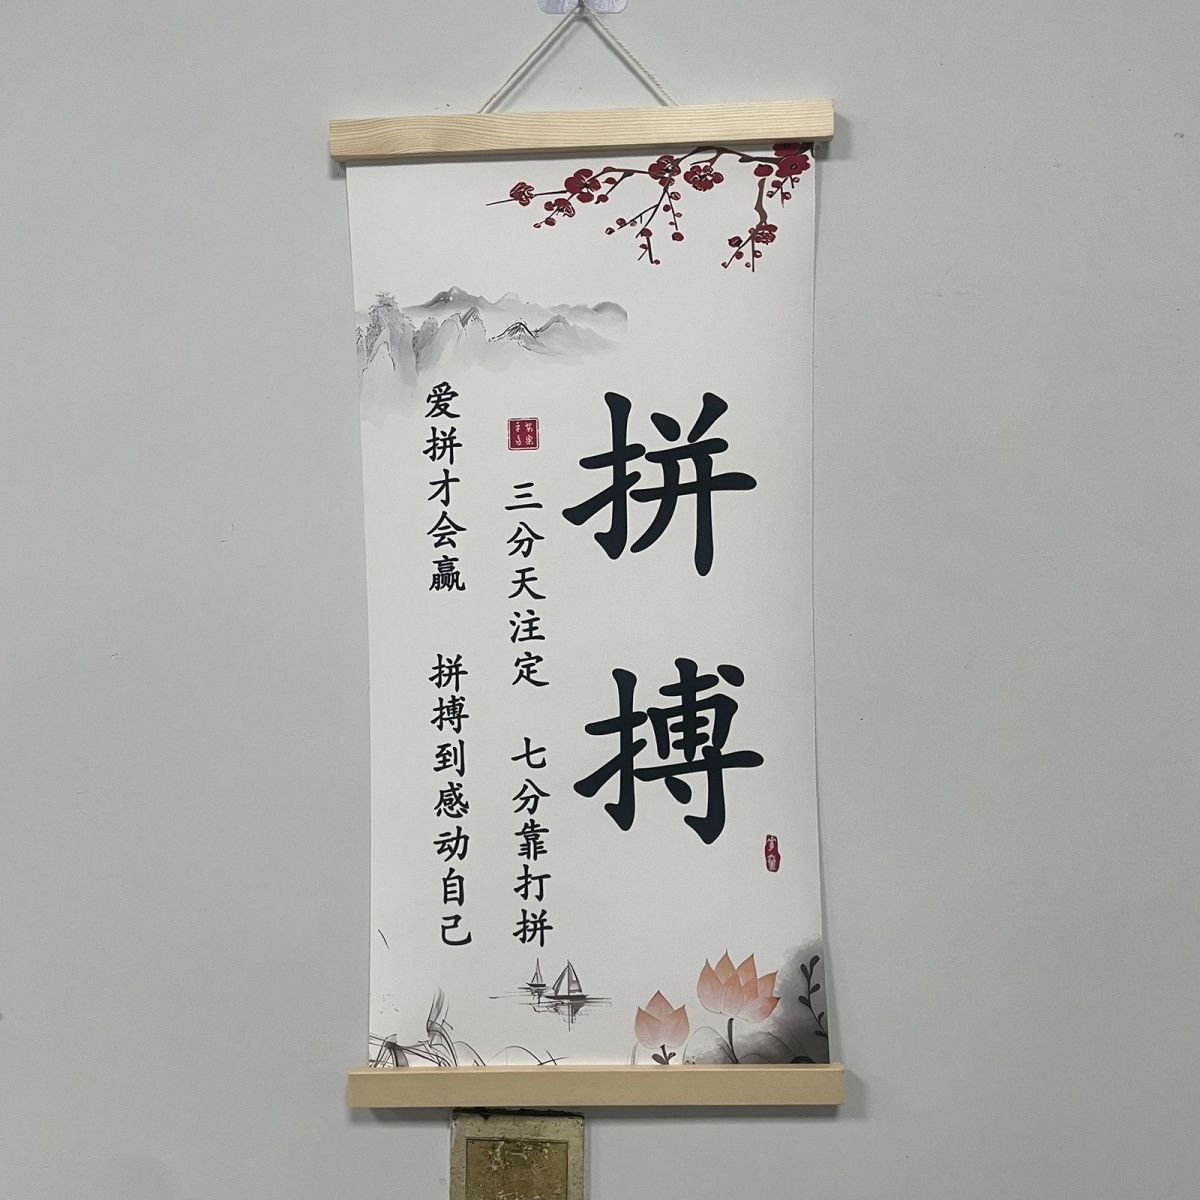 拼搏
三分天注定 七分靠打拼
爱拼才会赢 拼搏到感动自己